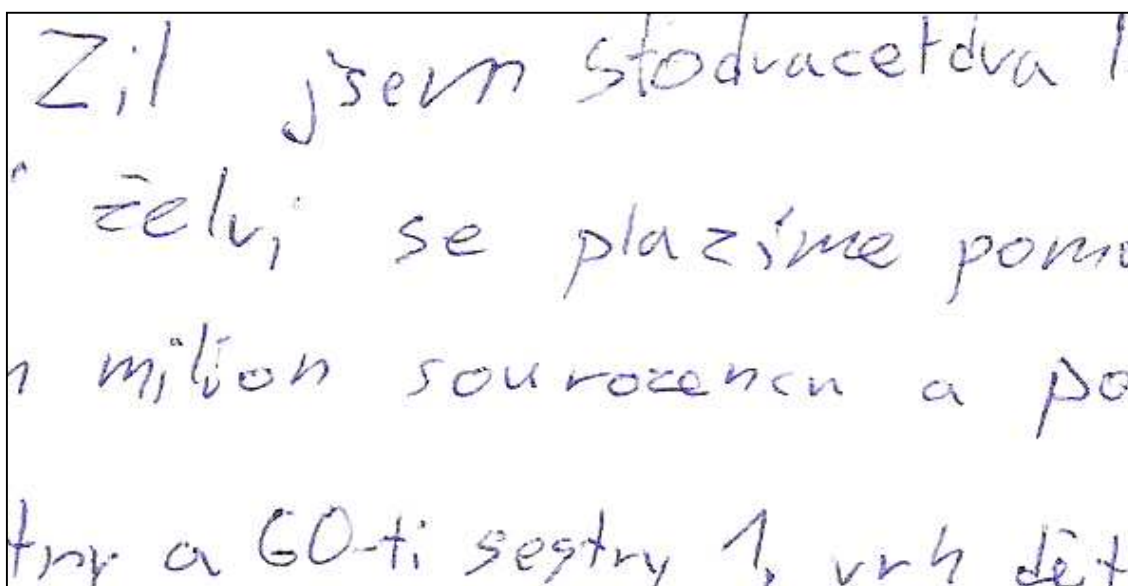 Zil jsem stodvacetdva l
želvi se plazíme pomo
m milion sourozencu a po
try a 60-ti sestry 1, vrh dět